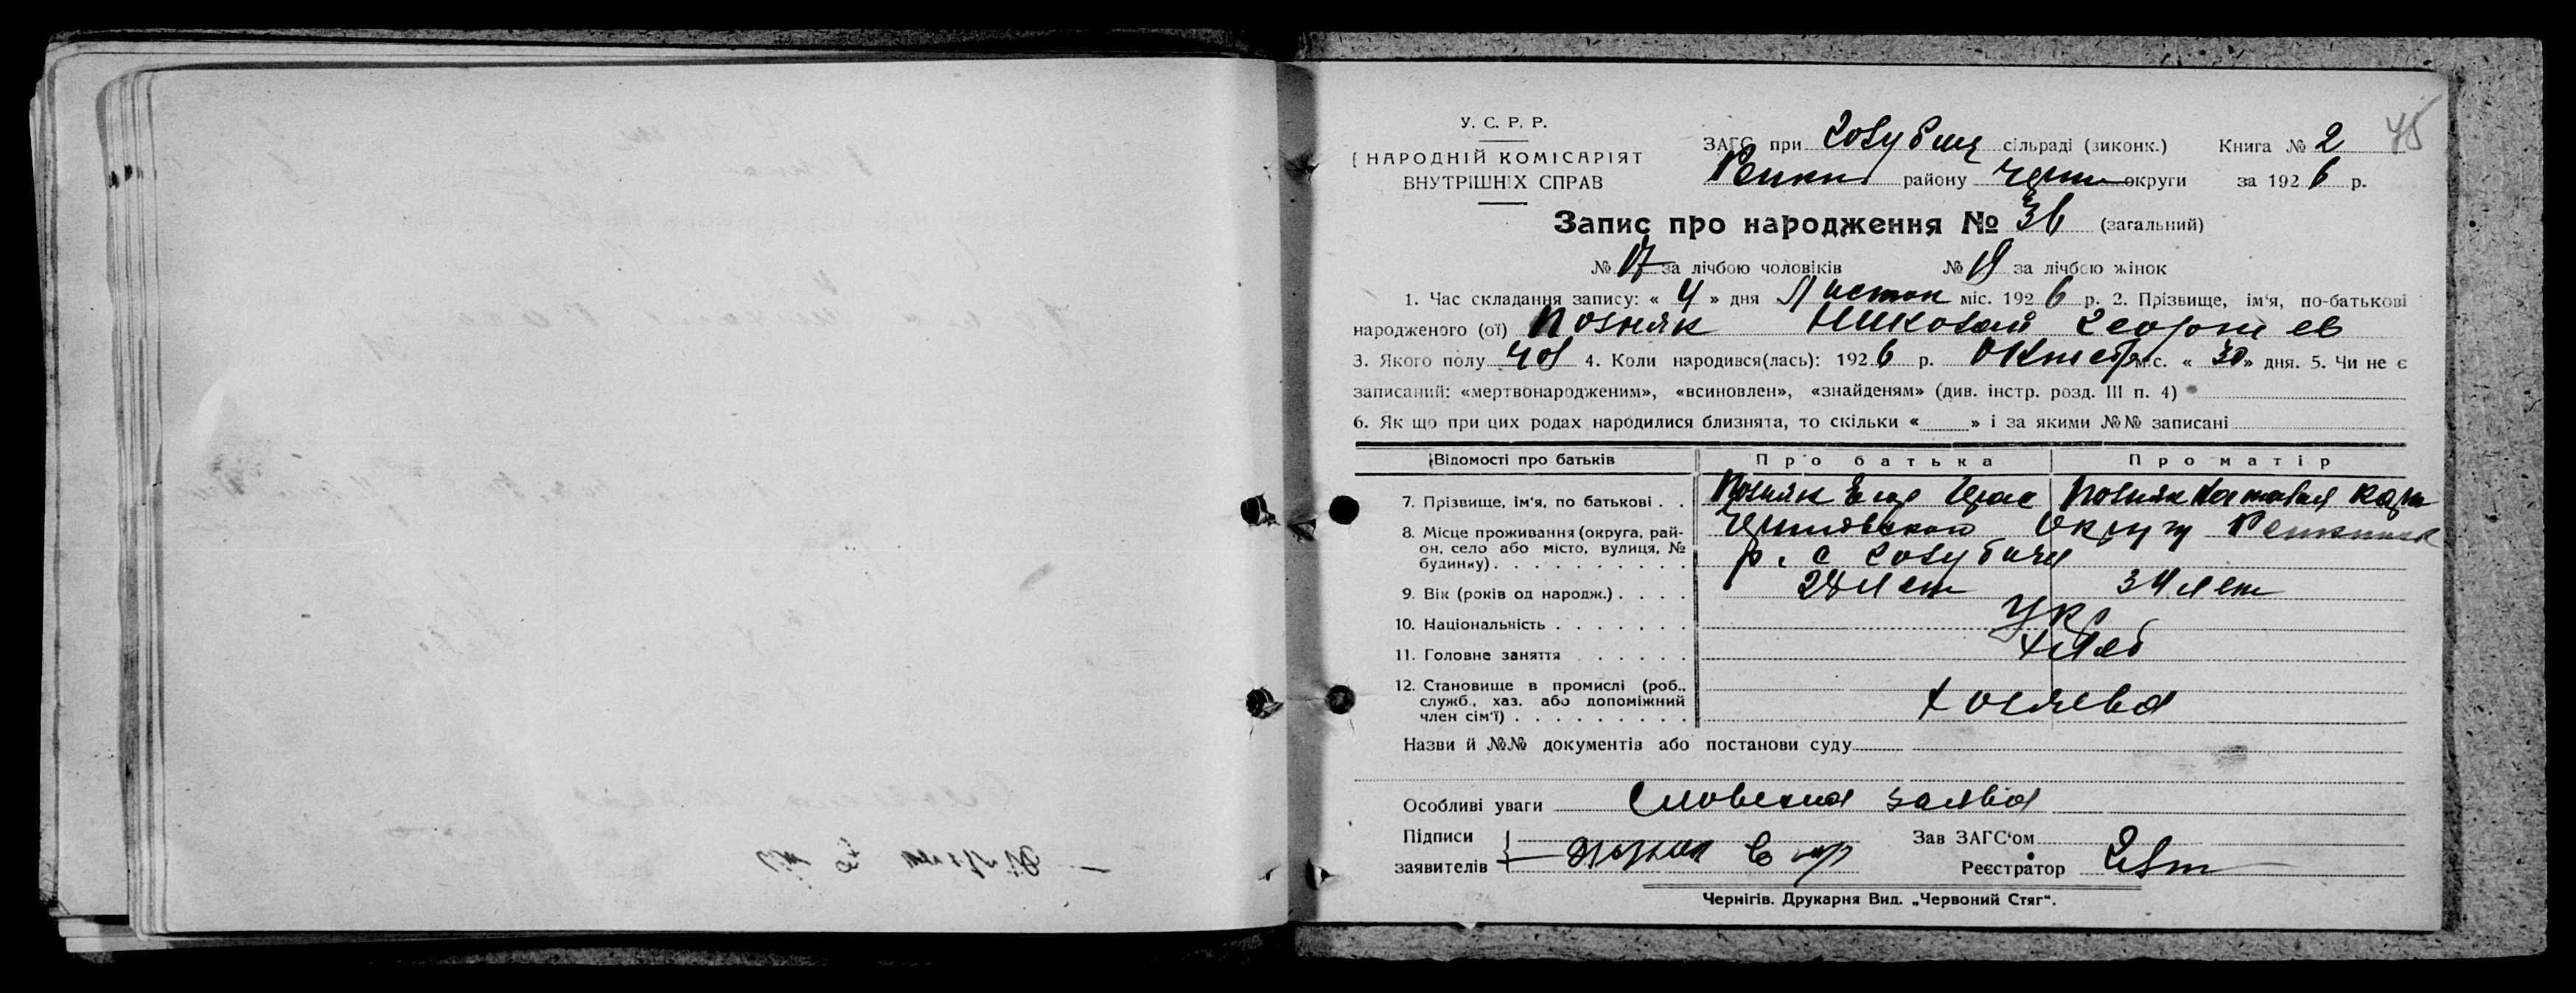 У. С. Р. Р.
НАРОДНІЙ КОМІСАРІЯТ
ВНУТРІШНІХ СПРАВ
ЗАГС при Голубич сільраді (виконк.) Книга № 2 45
Репкин району Черни округи за 1926 р.
Запис про народження № 36 (загальний)
№ 17 за лічбою чоловіків № 19 за лічбою жінок
1. Час складання запису: « 4 » дня Листоп міс. 1926 р. 2. Прізвище, ім'я, по-батькові
народженого (ої) Позняк Николай Георгиев
3. Якого полу чол 4. Коли народився(лась): 1926 р. Октября міс. « 30 » дня. 5. Чи не є
записаний: «мертвонародженим», «всиновлен», «знайденям» (див. інстр. розд. III п. 4)
6. Як що при цих родах народилися близнята, то скільки « » і за якими №№ записані
Відомості про батьків Про батька Про матір
7. Прізвище, ім'я, по батькові . . Позняк Позняк
8. Місце проживання (округа, рай-
он, село або місто, вулиця, №
будинку) . . . . . . . . . . округу Репкинск
р. с Голубичи
9. Вік (років од народж.) . . . . 28 лет 34 лет
10. Національність . . . . . . . Ук
11. Головне заняття . . . . . . Хлеб
12. Становище в промислі (роб.,
служб., хаз. або допоміжний
член сім'ї) . . . . . . . . .
Назви й №№ документів або постанови суду
Особливі уваги Словесна заява
Підписи
заявителів
Зав ЗАГС'ом
Реєстратор
Чернігів. Друкарня Вид. „Червоний Стяг“.